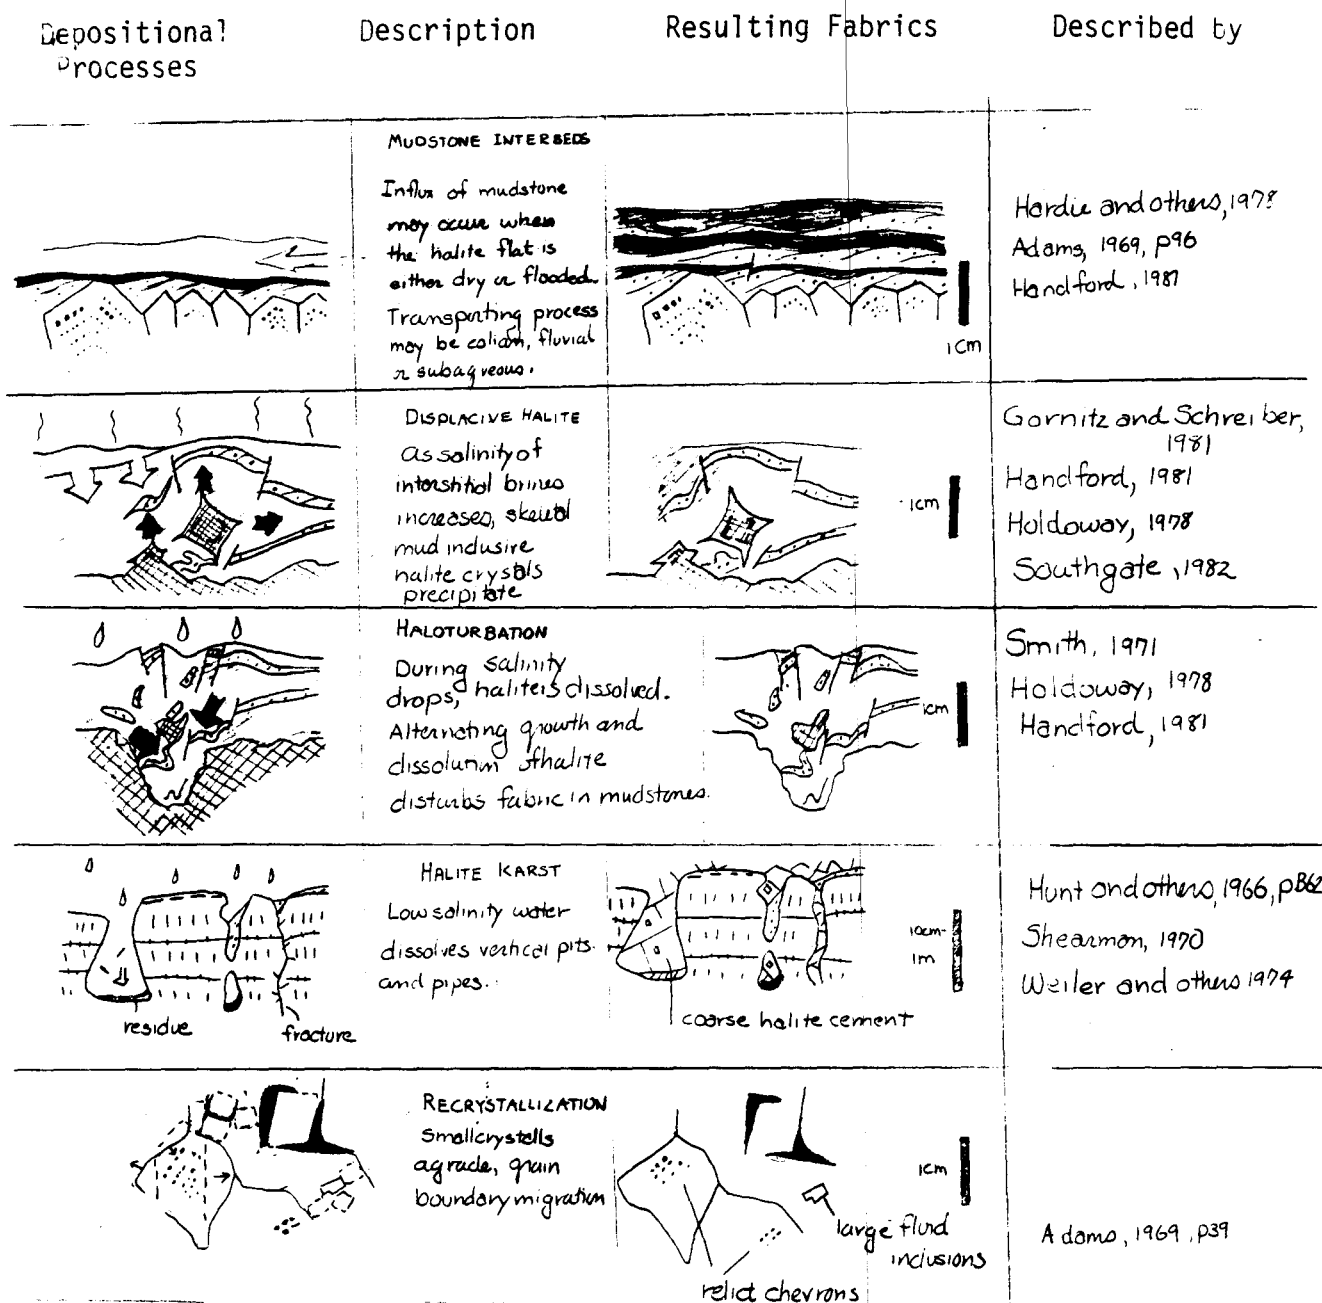 Depositional Description Resulting Fabrics Described by
Processes
MUDSTONE INTERBEDS
Influx of mudstone
may occur when
the halite flat is
either dry or flooded.
Transporting process
may be eolian, fluvial
or subaqeous.
1cm
Hardie and others, 1978
Adams, 1969, p96
Handford, 1981
DISPLACIVE HALITE
As salinity of
interstitial brines
increases, skeletal
mud inclusive
halite crystals
precipitate
1cm
Gornitz and Schreiber,
1981
Handford, 1981
Holdoway, 1978
Southgate, 1982
HALOTURBATION
During salinity
drops, halite is dissolved.
Alternating growth and
dissolution of halite
disturbs fabric in mudstones.
1cm
Smith, 1971
Holdoway, 1978
Handford, 1981
HALITE KARST
Low salinity water
dissolves vertical pits
and pipes.
residue
fracture
coarse halite cement
10cm-
1m
Hunt and others, 1966, pB62
Shearman, 1970
Weiler and others 1974
RECRYSTALLIZATION
Small crystalls
agrade, grain
boundary migration
1cm
large fluid
inclusions
relict chevrons
Adams, 1969, p39